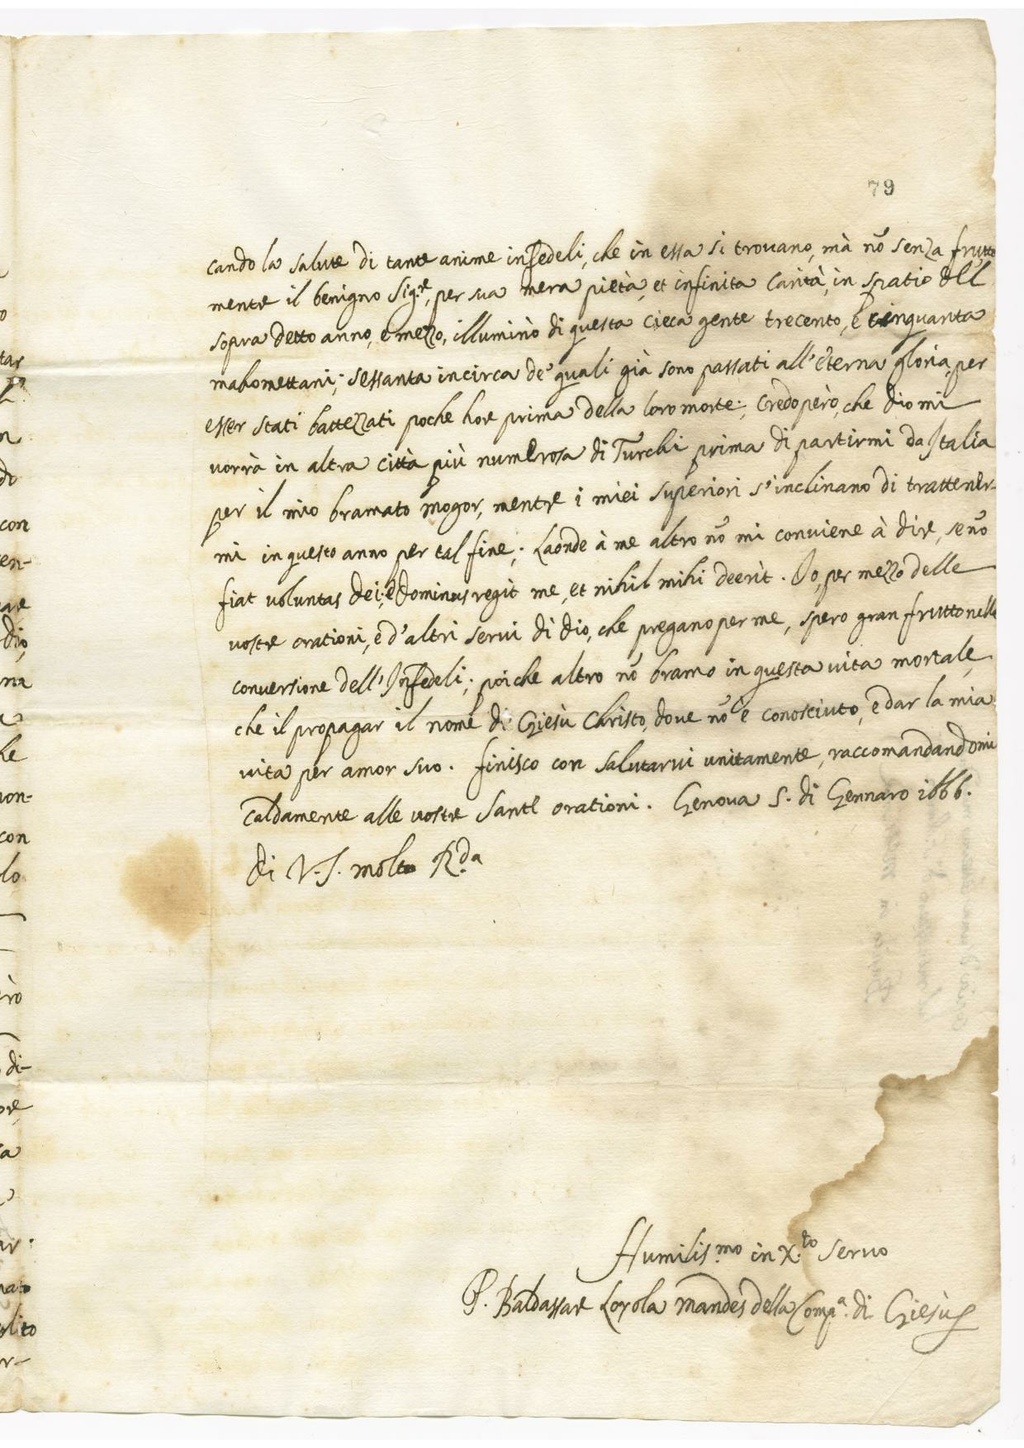 79
cando la salute di tante anime infedeli, che in essa si trouano, mà nõ senza frutto
mentre il benigno Sig.re, per sua mera pietà, et infinita Carità, in spatio dell
sopra detto anno, e mezzo, illuminò di questa cieca gente trecento, e cinquanta
mahomettani; sessanta incirca de' quali già sono passati all'eterna gloria, per
esser stati battezzati poche hore prima della loro morte; Credo però, che dio mi
vorrà in altra città più numerosa di Turchi prima di partirmi da Italia
per il mio bramato mogor, mentre i miei superiori s'inclinano di trattener-
mi in questo anno per tal fine; Laonde à me altro nõ mi conviene à dire, se nõ
fiat voluntas dei; e Dominus regit me, et nihil mihi deerit. Io, per mezzo delle
vostre orationi, e d'altri serui di dio, che pregano per me, spero gran frutto nelle
conversione dell'Infedeli; poiche altro nõ bramo in questa uita mortale,
che il propagar il nome di Giesù Christo, doue nõ è conosciuto, e dar la mia
uita per amor suo. finisco con salutarui unitamente, raccomandandomi
caldamente alle vostre Sante orationi. Genova 5. di Gennaro 1666.
di V.S. molto R.da
Humilis.mo in X.to seruo
P. Baldassare Loyola mandes della Comp.a di Giesù
con
lo